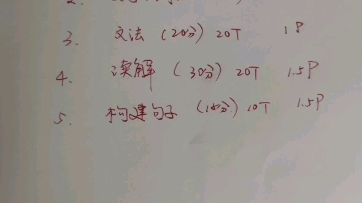 3. 文法 (20分) 20T 1P
4. 读解 (30分) 20T 1.5P
5. 构建句子 (10分) 10T 1.5P